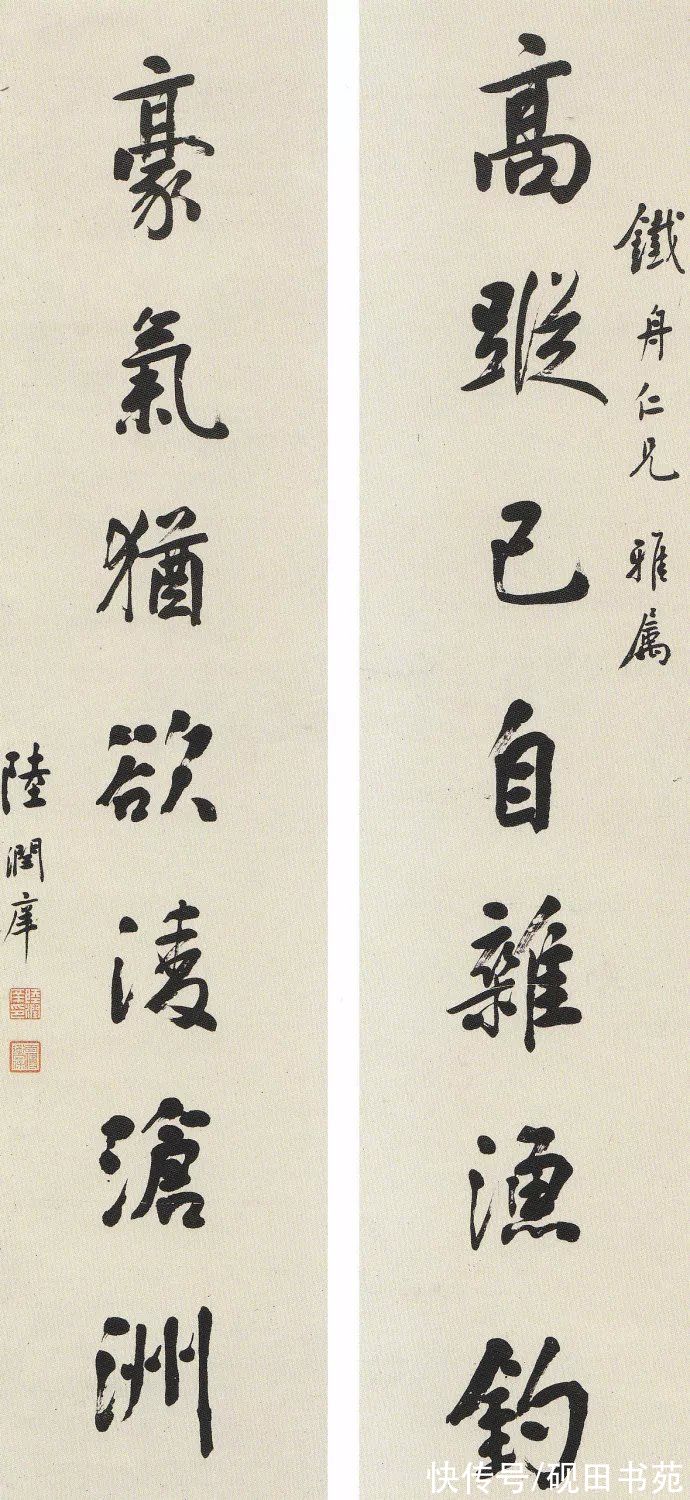 鐵舟仁兄雅屬
高蹤已自雜漁釣
豪氣猶欲淩滄洲
陸潤庠
快传号/砚田书苑